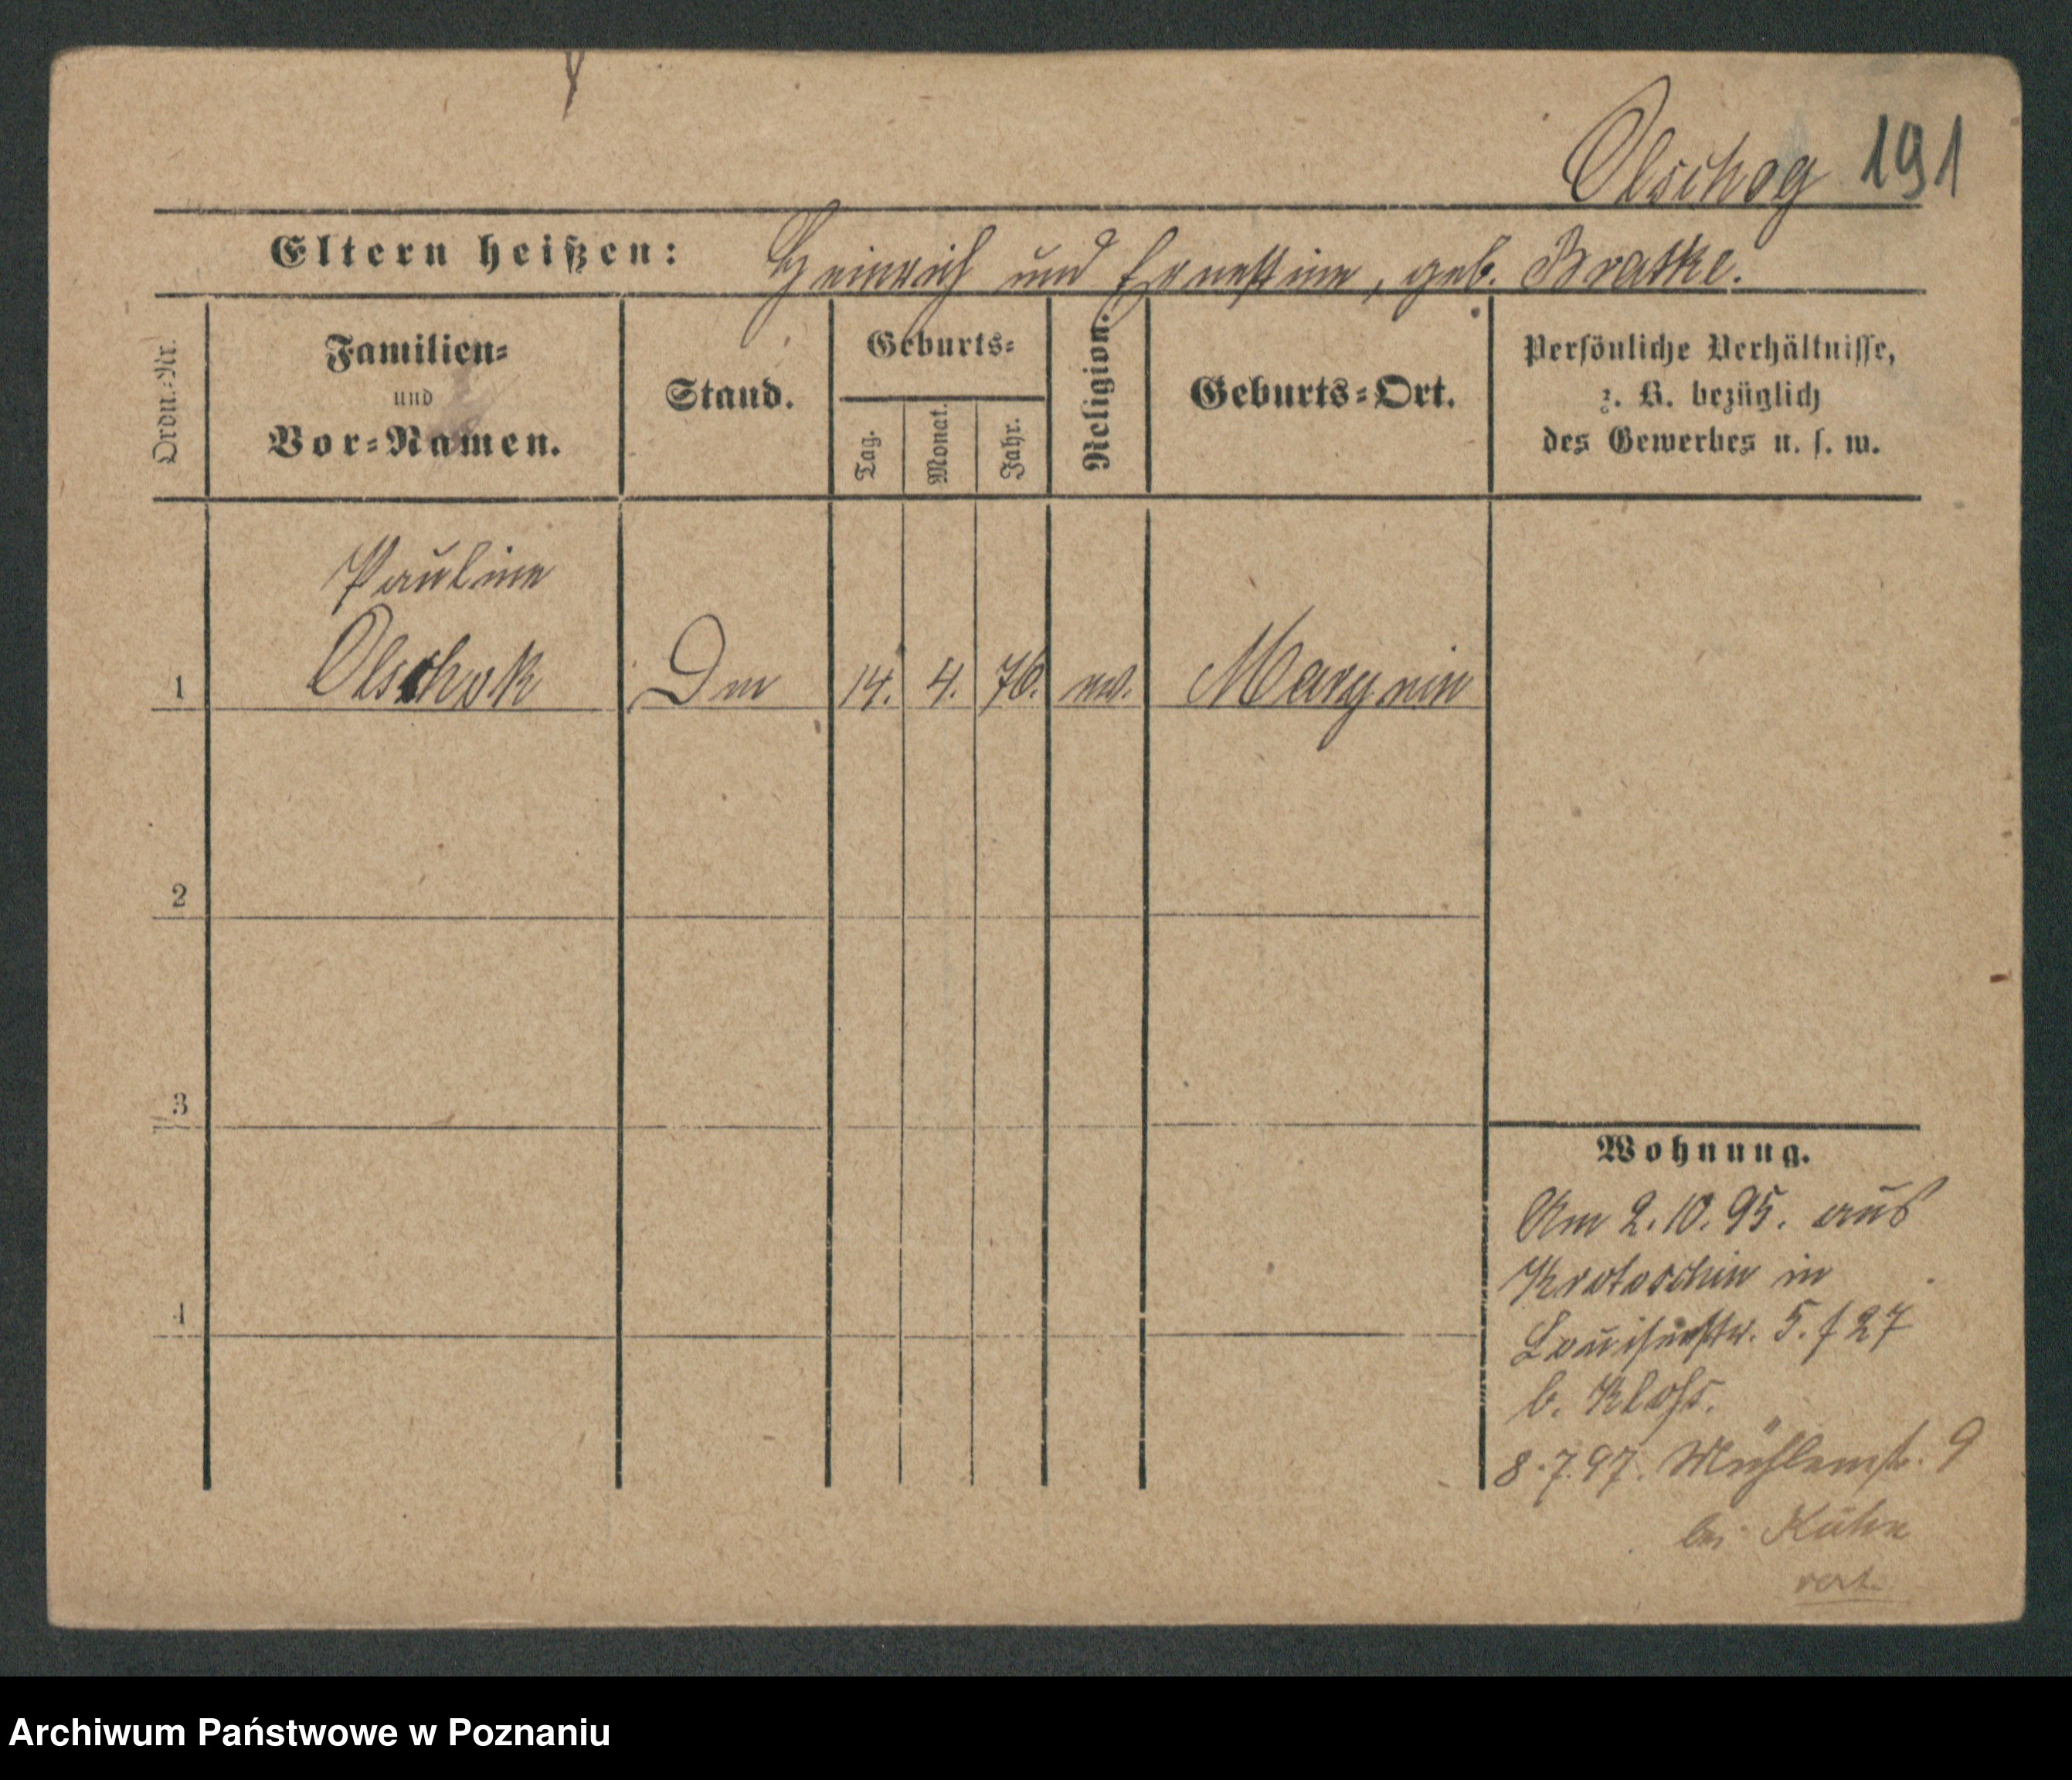 Olschog 191
Eltern heißen: Heinrich und Ernestine, geb. Bratke.
Ordn.=Nr.
Familien=
und
Vor=Namen.
Stand.
Geburts=
Tag.
Monat.
Jahr.
Religion.
Geburts=Ort.
Persönliche Verhältnisse,
z. B. bezüglich
des Gewerbes u. s. w.
Pauline
1 Olschok 14. 4. 76. ev.
2
3
4
Wohnung.
Am 2.10.95. aus
Krotoschin in
Louisenstr. 5. f 27
b.
8.7.97. Mühlenstr. 9
bei Kühn
Archiwum Państwowe w Poznaniu